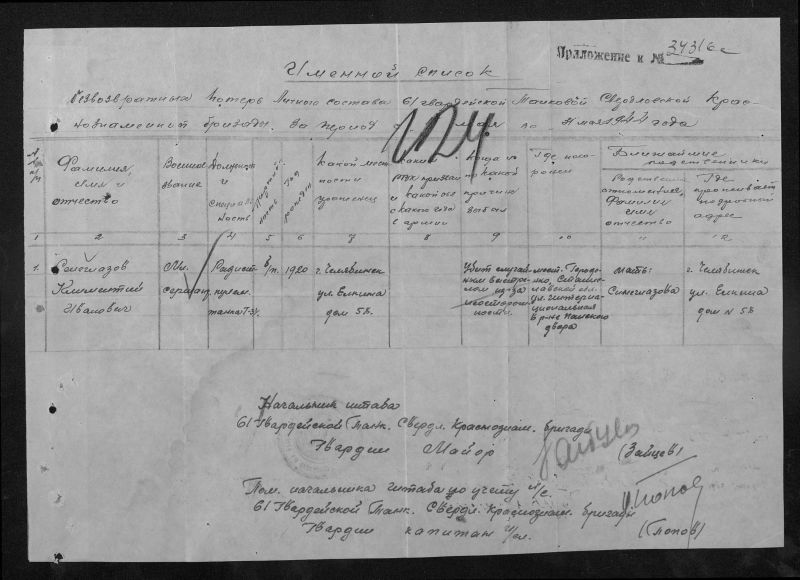 Приложение к № 34316с
Именной список
безвозвратных потерь личного состава 61 гвардейской Танковой Свердловской Крас-
нознаменной бригады. За период с мая по 31 мая 1944 года
№№ п/п
Фамилия, имя и отчество
Воинское звание
Должность и специальность
Партийность
Год рожден.
Какой местности уроженец
Каким РВК призван и какой обл. с какого года в армии
Когда и по какой причине выбыл
Где похоронен
Ближайшие родственники
Родствен. отношения, Фамилия имя отчество
Где проживает подробный адрес
1 2 3 4 5 6 7 8 9 10 11 12
1. Синеглазов Климентий Иванович
Мл. сержант
Радист пулем. танка Т-34.
б/п.
1920
г. Челябинск ул. Елькина дом 5Б.
Убит случайным выстрелом из-за неосторожности.
мать: Синеглазова
г. Челябинск ул. Елькина дом № 5Б
Начальник штаба
61 Гвардейской Танк. Свердл. Краснознам. бригады
Гвардии Майор (Зайцев)
Пом. начальника штаба по учету л/с.
61 Гвардейской Танк. Свердл. Краснознам. бригады
Гвардии капитан (Попов)